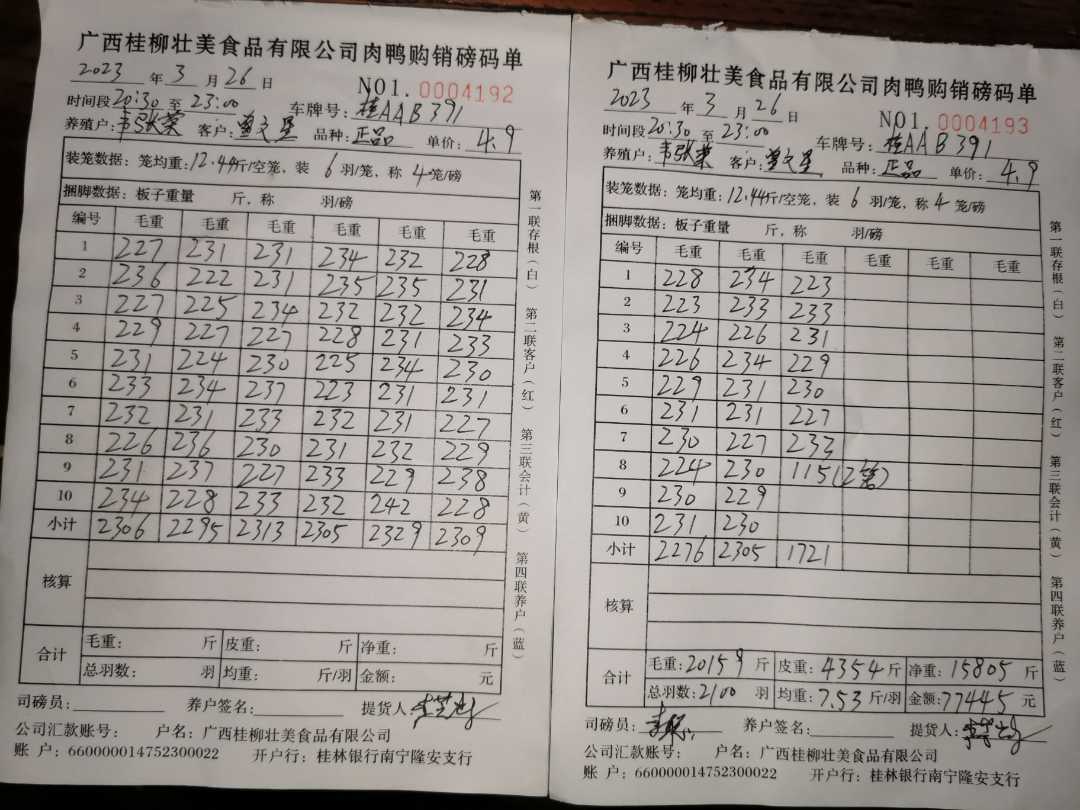 广西桂柳壮美食品有限公司肉鸭购销磅码单
2023 年 3 月 26 日 NO1. 0004192
时间段 20:30 至 23:00 车牌号: 桂AAB391
养殖户: 客户: 品种: 正品 单价: 4.9
装笼数据: 笼均重: 12.44斤/空笼, 装 6 羽/笼, 称 4 笼/磅
捆脚数据: 板子重量 斤, 称 羽/磅
编号 毛重 毛重 毛重 毛重 毛重 毛重
1 227 231 231 234 232 228
2 236 222 231 235 235 231
3 227 225 234 232 232 234
4 229 227 227 228 231 233
5 231 224 230 225 234 230
6 233 234 237 223 231 231
7 232 231 233 232 231 227
8 226 236 230 231 232 229
9 231 237 227 233 229 238
10 234 228 233 232 242 228
小计 2306 2295 2313 2305 2329 2309
核算
合计 毛重: 斤 皮重: 斤 净重: 斤
总羽数: 羽 均重: 斤/羽 金额: 元
司磅员: 养户签名: 提货人:
公司汇款账号: 户名: 广西桂柳壮美食品有限公司
账 户: 660000014752300022 开户行: 桂林银行南宁隆安支行
第一联存根(白) 第二联客户(红) 第三联会计(黄) 第四联养户(蓝)
广西桂柳壮美食品有限公司肉鸭购销磅码单
2023 年 3 月 26 日 NO1. 0004193
时间段 20:30 至 23:00 车牌号: 桂AAB391
养殖户: 客户: 品种: 正品 单价: 4.9
装笼数据: 笼均重: 12.44斤/空笼, 装 6 羽/笼, 称 4 笼/磅
捆脚数据: 板子重量 斤, 称 羽/磅
编号 毛重 毛重 毛重 毛重 毛重 毛重
1 228 234 223
2 223 233 233
3 224 226 231
4 226 234 229
5 229 231 230
6 231 231 227
7 230 227 233
8 224 230 115(2笼)
9 230 229
10 231 230
小计 2276 2305 1721
核算
合计 毛重: 20159 斤 皮重: 4354 斤 净重: 15805 斤
总羽数: 2100 羽 均重: 7.53 斤/羽 金额: 77445 元
司磅员: 养户签名: 提货人:
公司汇款账号: 户名: 广西桂柳壮美食品有限公司
账 户: 660000014752300022 开户行: 桂林银行南宁隆安支行
第一联存根(白) 第二联客户(红) 第三联会计(黄) 第四联养户(蓝)